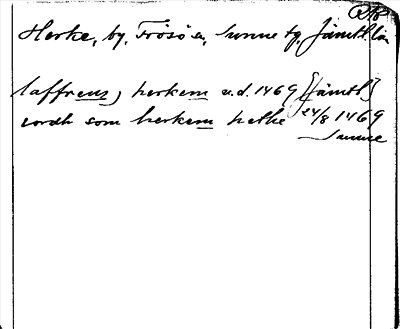 RAp
Herke, by, Frösö sn, Sunne tg, Jämtl. län
laffrens) herkem u.d. 1469 [Jämtl.]
iordh som herkem hethe 24/8 1469
Sunne